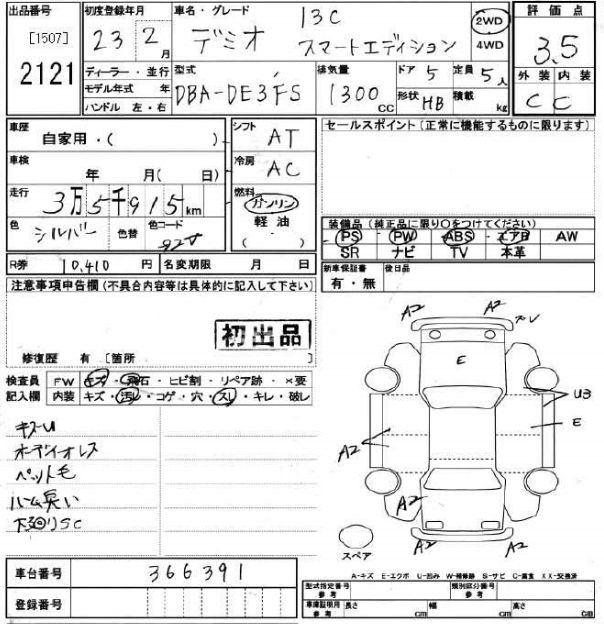 出品番号 初度登録年月 車名・グレード 13C 評価点
[1507] 23年2月 デミオ スマートエディション 2WD 4WD 3.5
2121 ディーラー・並行 型式 排気量 ドア 5 定員 5人 外装 内装
モデル年式 年 DBA-DE3FS 1300cc 形状 HB 積載 kg C C
ハンドル 左・右
車歴 自家用・( ) シフト AT セールスポイント(正常に機能するものに限ります)
車検 年 月( 日) 冷房 AC
走行 3万5千915km 燃料 ガソリン
色 シルバー 色替 色コード 軽油 装備品(純正品に限り○をつけてください)
( ) PS PW ABS エアB AW
R券 10,410円 名変期限 月 日 SR ナビ TV 本革
注意事項申告欄(不具合内容等は具体的に記入して下さい) 新車保証書 後日品
有・無
初出品
修復歴 有 [箇所
検査員 FW キズ・飛石・ヒビ割・リペア跡・×要
記入欄 内装 キズ・汚れ・コゲ・穴・スレ・キレ・破レ
A2 A2
E
U3
E
A2
A2
A2 A2
キズU
オーディオレス
ペット毛
ルーム臭い
下廻りSC
スペア
A-キズ E-エクボ U-凹み W-補修跡 S-サビ C-腐食 XX-交換済
車台番号 366391
登録番号
型式指定番号 参考 類別区分番号 参考
車庫証明用 参考 長さ cm 幅 cm 高さ cm